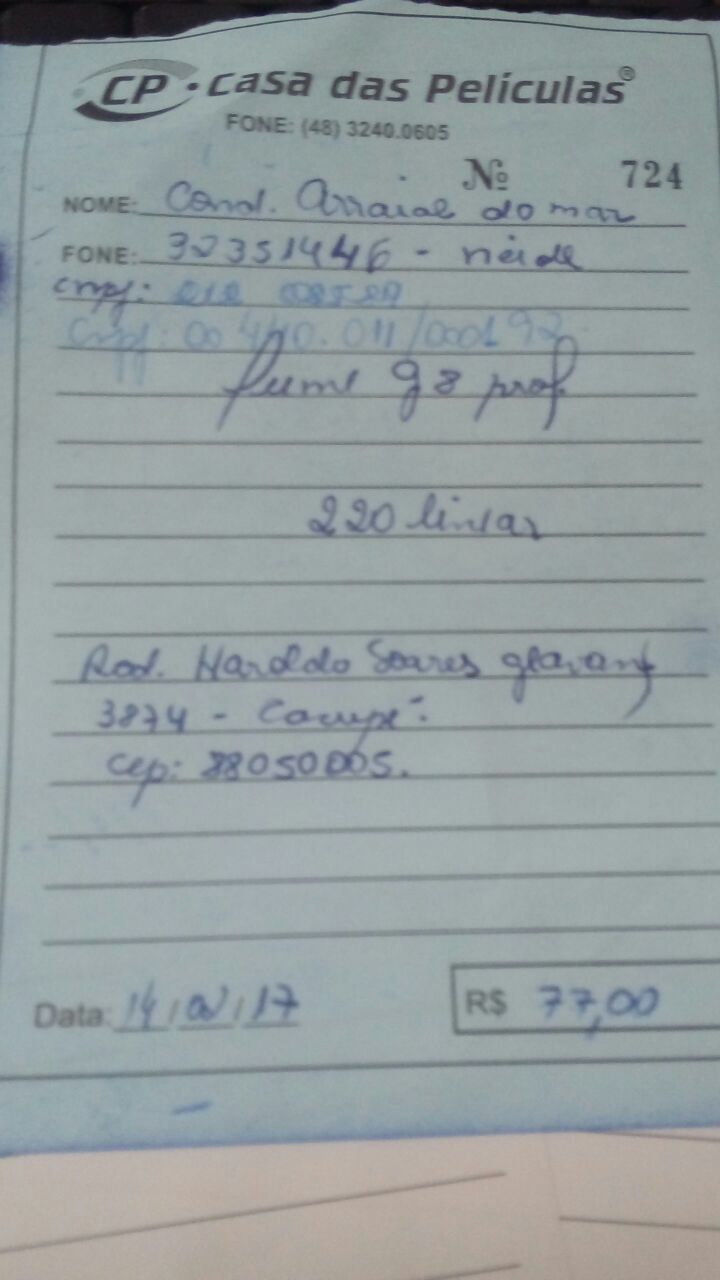 CP • casa das Películas®
FONE: (48) 3240.0605
Nº 724
NOME: Cond. Arraial do mar
FONE: 32351446 - neide
cnpj:
Cnpj: 00 440.011/0001 92
fume g8 prof
220 linear
Rod. Haroldo Soares glavam
3874 - Cacupé.
Cep: 88050005.
Data: 14/02/17
R$ 77,00